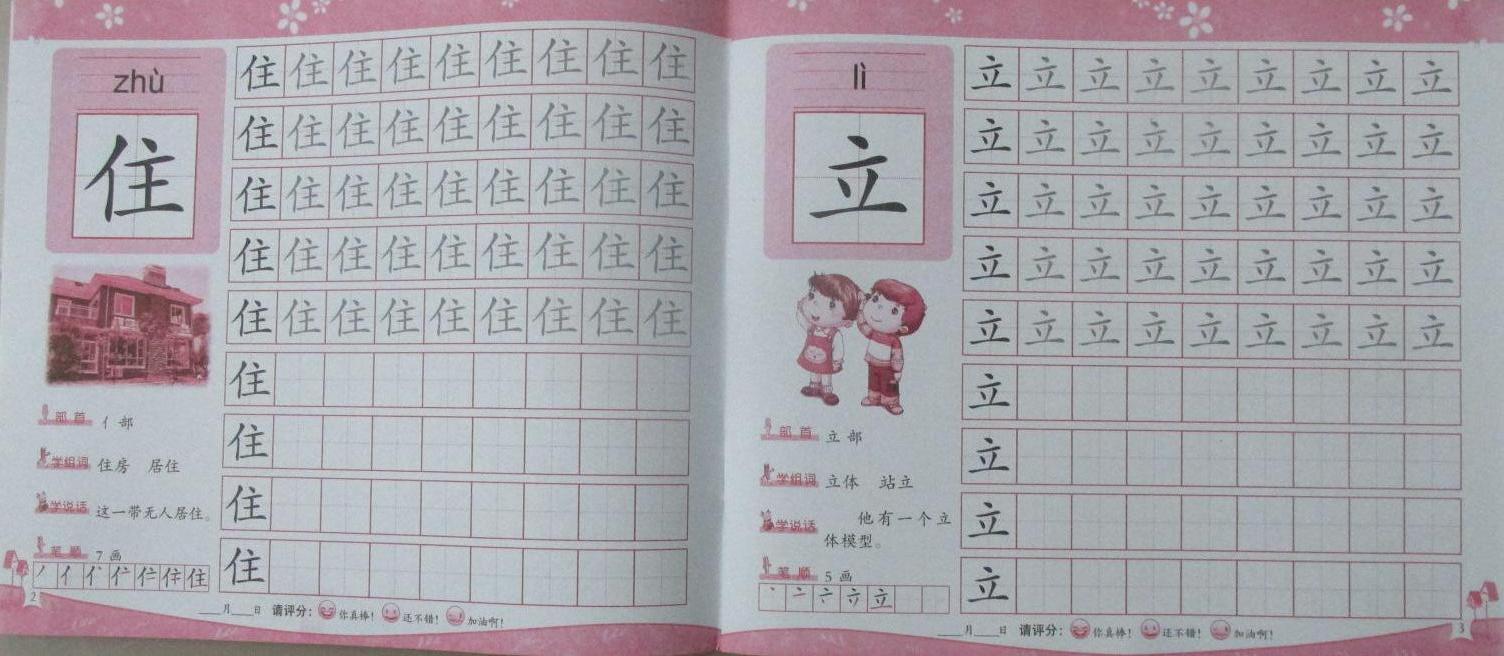 zhù
住
住住住住住住住住住
住住住住住住住住住
住住住住住住住住住
住住住住住住住住住
住住住住住住住住住
住
住
住
住
部首 亻部
学组词 住房 居住
学说话 这一带无人居住。
笔顺 7画
丿 亻 亻 亻 住
2
月 日 请评分： 你真棒！ 还不错！ 加油啊！
lì
立
立立立立立立立立立
立立立立立立立立立
立立立立立立立立立
立立立立立立立立立
立立立立立立立立立
立
立
立
立
部首 立部
学组词 立体 站立
学说话 他有一个立
体模型。
笔顺 5画
丶 亠 立
月 日 请评分： 你真棒！ 还不错！ 加油啊！
3